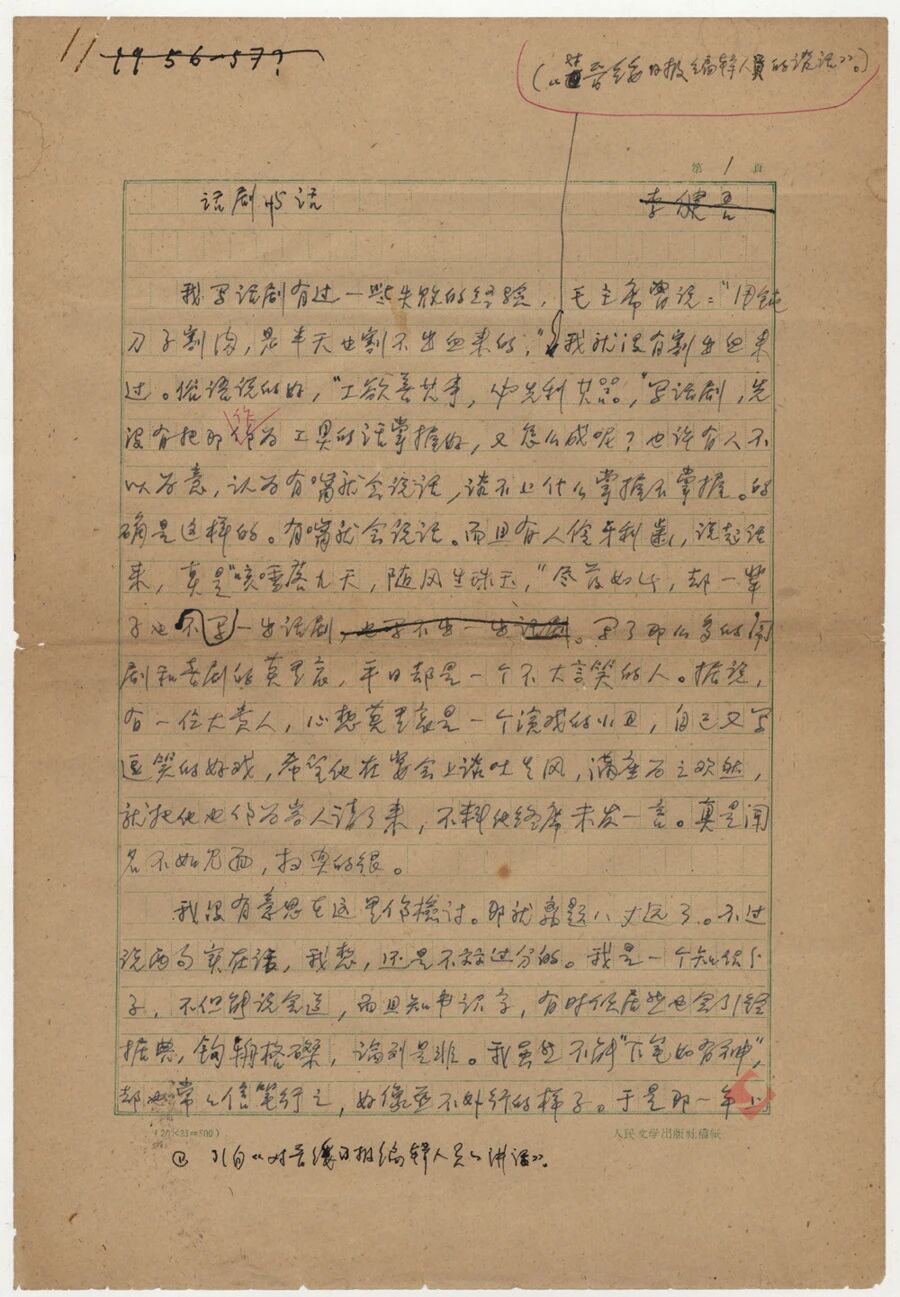 11 1956-57?
(《对晋绥日报编辑人员的谈话》。)
第 1 页
话剧的话 李健吾
我写话剧有过一些失败的经验,毛主席曾说:“用钝
刀子割肉,是半天也割不出血来的,”我就没有割出血来
过。俗语说的好,“工欲善其事,必先利其器。”写话剧,先
没有把那作为工具的话掌握好,又怎么成呢?也许有人不
以为意,认为有嘴就会说话,谈不上什么掌握不掌握。的
确是这样的。有嘴就会说话。而且有人伶牙利齿,说起话
来,真是“咳唾落九天,随风生珠玉,”尽管如此,却一辈
子也不写一出话剧,也写不出一出话剧。写了那么多的闹
剧和喜剧的莫里哀,平日却是一个不大言笑的人。据说,
有一位大贵人,心想莫里哀是一个演戏的小丑,自己又写
逗笑的好戏,希望他在宴会上谈吐生风,满座为之欢然,
就把他也作为客人请了来,不料他终席未发一言。真是闻
名不如见面,扫兴的很。
我没有意思在这里作检讨。那就离题八丈远了。不过
说两句实在话,我想,还是不算过分的。我是一个知识分
子,不但能说会道,而且知书识字,有时候居然也会引经
据典,钩朝格磔,论列是非。我虽然不能“下笔如有神”,
却也常常信笔行之,好像并不外行的样子。于是那一年上
(20×25=500) 人民文学出版社稿纸
① 引自《对晋绥日报编辑人员的讲话》。